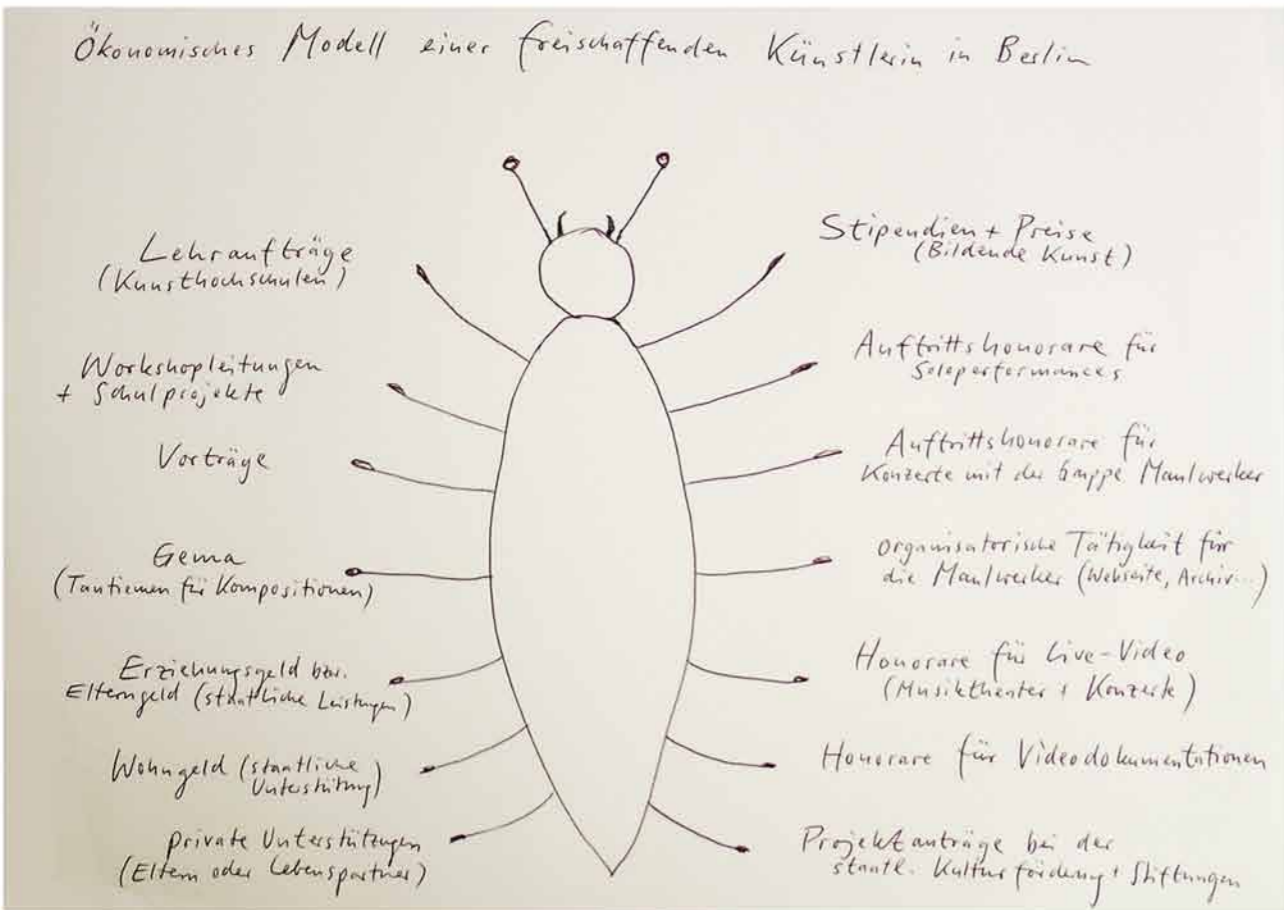 Ökonomisches Modell einer freischaffenden Künstlerin in Berlin
Lehraufträge
(Kunsthochschulen)
Workshopleitungen
+ Schulprojekte
Vorträge
Gema
(Tantiemen für Kompositionen)
Erziehungsgeld bzw.
Elterngeld (staatliche Leistungen)
Wohngeld (staatliche
Unterstützung)
private Unterstützungen
(Eltern oder Lebenspartner)
Stipendien + Preise
(Bildende Kunst)
Auftrittshonorare für
Soloperformances
Auftrittshonorare für
Konzerte mit der Gruppe Maulwerker
organisatorische Tätigkeit für
die Maulwerker (Webseite, Archiv...)
Honorare für Live-Video
(Musiktheater + Konzerte)
Honorare für Videodokumentationen
Projektanträge bei der
staatl. Kulturförderung + Stiftungen